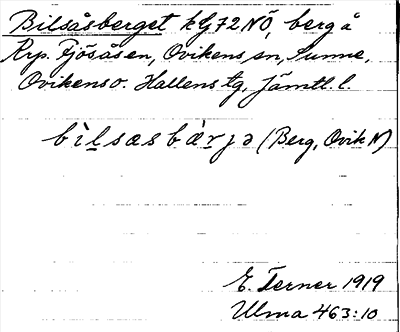 Bilsåsberget kG72NÖ, berg å
Krp. Fjösåsen, Ovikens sn, Sunne,
Ovikens o. Hallens tg, Jämtl. l.
bìlsasbàrjə (Berg, Ovik N)
E. Terner 1919
Ulma 463:10